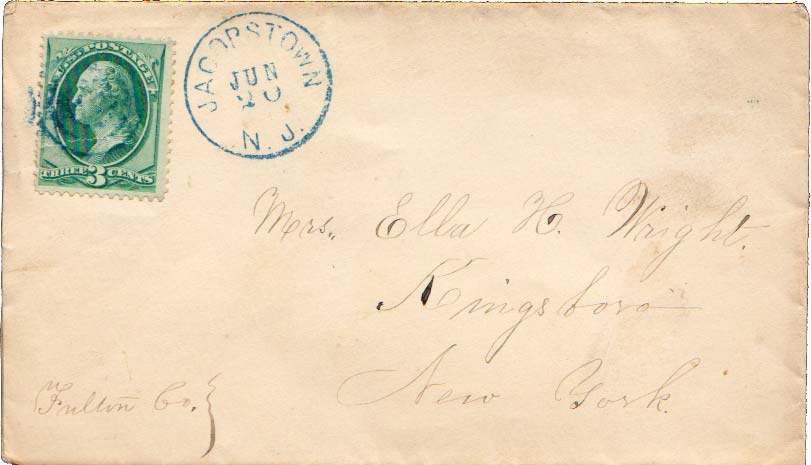 U.S. POSTAGE
THREE 3 CENTS
JACOBSTOWN
JUN
20
N. J.
Mrs. Ella H. Wright.
Kingsboro
New York.
Fulton Co.